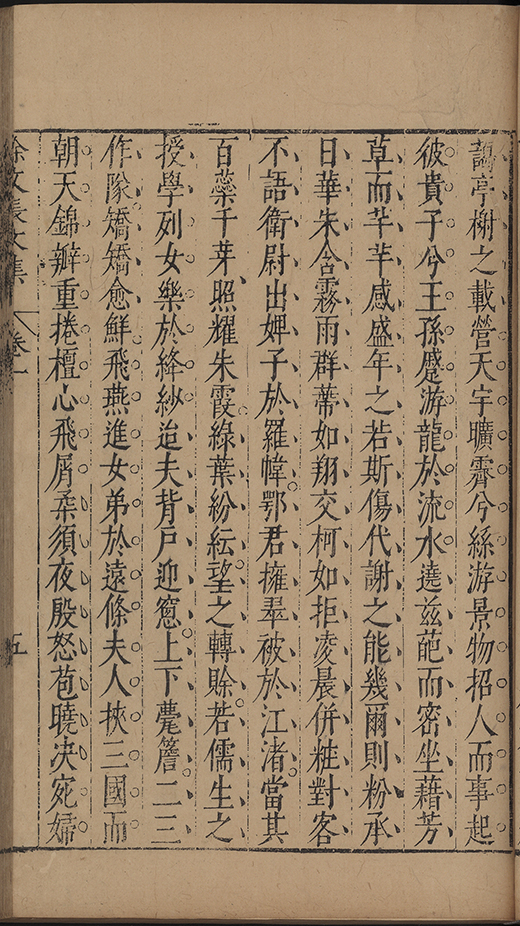 謂亭榭之載營天宇曠霽兮絲游景物招人而事起
彼貴子兮王孫蹙游龍於流水遶兹葩而密坐藉芳
草而芊芊感盛年之若斯傷代謝之能幾爾則粉承
日華朱含霧雨群蒂如翔交柯如拒凌晨併粧對客
不語衛尉出婢子於羅幃鄂君擁翠被於江渚當其
百蘂千芽照耀朱霞綠葉紛紜望之轉賒若儒生之
授學列女樂於絳紗迨夫背戶迎窻上下甍簷二三
作隊矯矯愈鮮飛燕進女弟於遠條夫人挾三國而
朝天錦瓣重捲檀心飛屑柔須夜殷怒苞曉决宛婦
徐文長文集 卷一 五